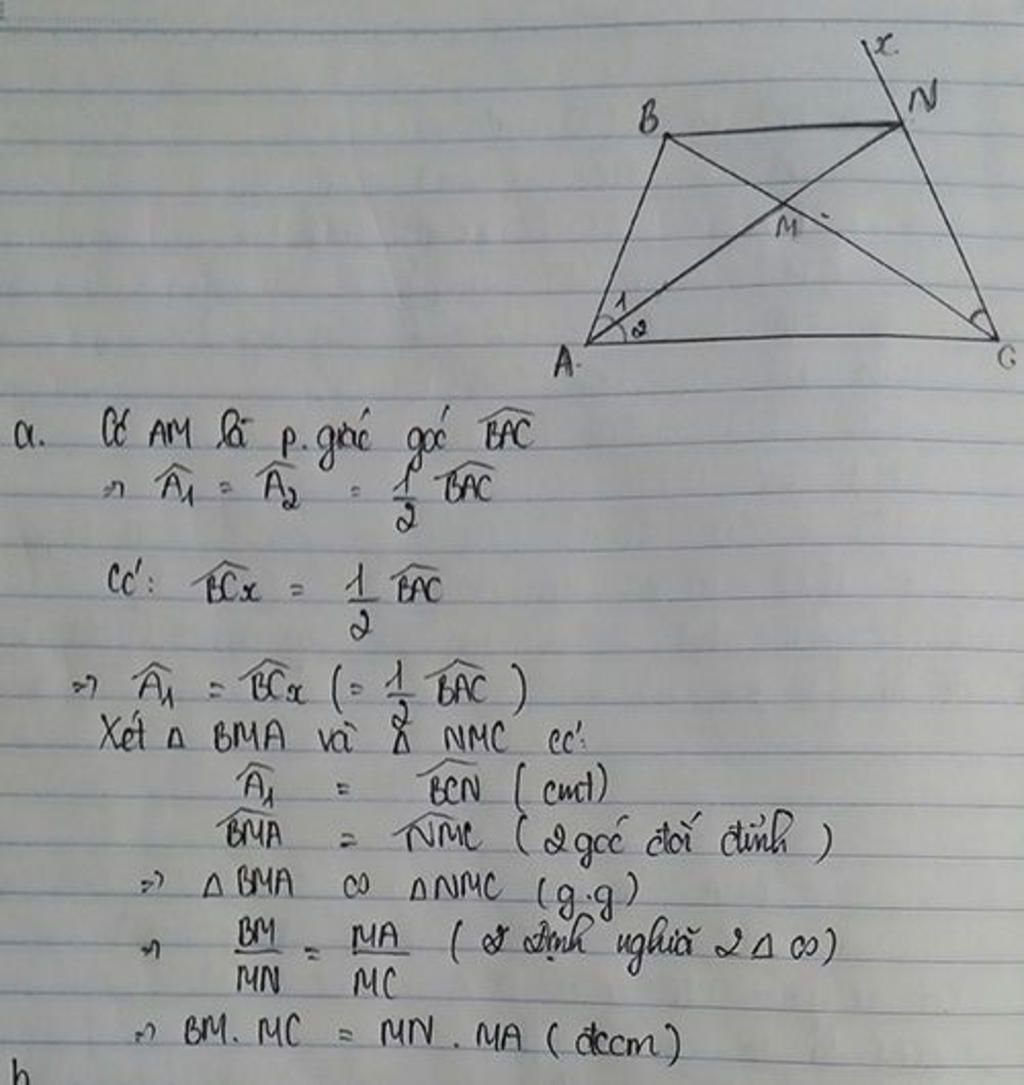 x
B
N
M
1
2
A
C
a. Có AM là p.giác góc \widehat{BAC}
=> \widehat{A_1} = \widehat{A_2} = \frac{1}{2} \widehat{BAC}
Có: \widehat{BCx} = \frac{1}{2} \widehat{BAC}
=> \widehat{A_1} = \widehat{BCx} (= \frac{1}{2} \widehat{BAC})
Xét Δ BMA và Δ NMC có:
\widehat{A_1} = \widehat{BCN} (cmt)
\widehat{BMA} = \widehat{NMC} (2 góc đối đỉnh)
=> Δ BMA ∽ Δ NMC (g.g)
=> \frac{BM}{MN} = \frac{MA}{MC} (định nghĩa 2 Δ ∽)
=> BM. MC = MN. MA (đccm)
b